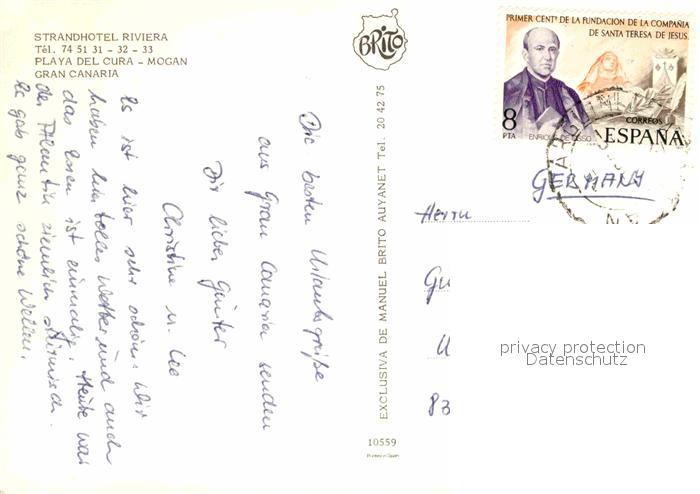 STRANDHOTEL RIVIERA
Tél. 74 51 31 - 32 - 33
PLAYA DEL CURA - MOGAN
GRAN CANARIA
BRITO
Die besten Urlaubsgrüße
aus Gran Canaria senden
Dir lieber Günter
Christine u. Leo
Es ist hier sehr schön. Wir
haben ein tolles Wetter und auch
das Essen ist einmalig. Heute war
der Atlantik ziemlich stürmisch.
Es gab ganz schöne Wellen.
EXCLUSIVA DE MANUEL BRITO AUYANET Tel. 20 42 75
10559
Printed in Spain
PRIMER CENTº DE LA FUNDACION DE LA COMPAÑIA
DE SANTA TERESA DE JESUS
8
PTA
CORREOS
ENRIQUE DE OSSO
ESPAÑA
GERMANY
Herrn
Gü
U
83
privacy protection
Datenschutz